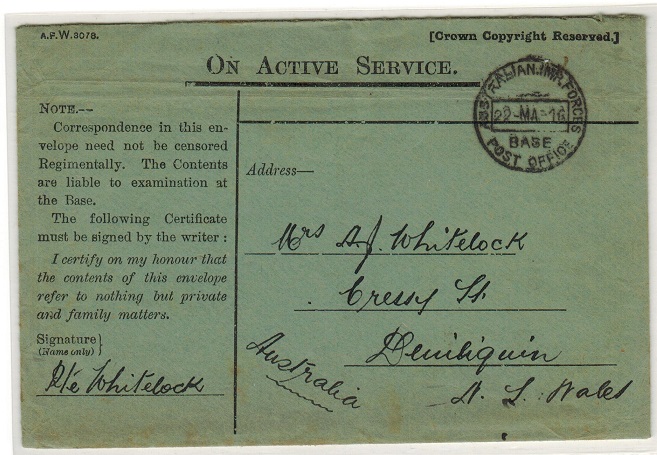 A.F.W.3078.
[Crown Copyright Reserved.]
ON ACTIVE SERVICE.
AUSTRALIAN IMP. FORCES
22-MA-16
BASE
POST OFFICE
NOTE.--
Correspondence in this en-
velope need not be censored
Regimentally. The Contents
are liable to examination at
the Base.
The following Certificate
must be signed by the writer :
I certify on my honour that
the contents of this envelope
refer to nothing but private
and family matters.
Signature}
(Name only)
Pte Whitelock
Address—
Mrs A.J. Whitelock
Cressy St.
Deniliquin
N. S. Wales
Australia